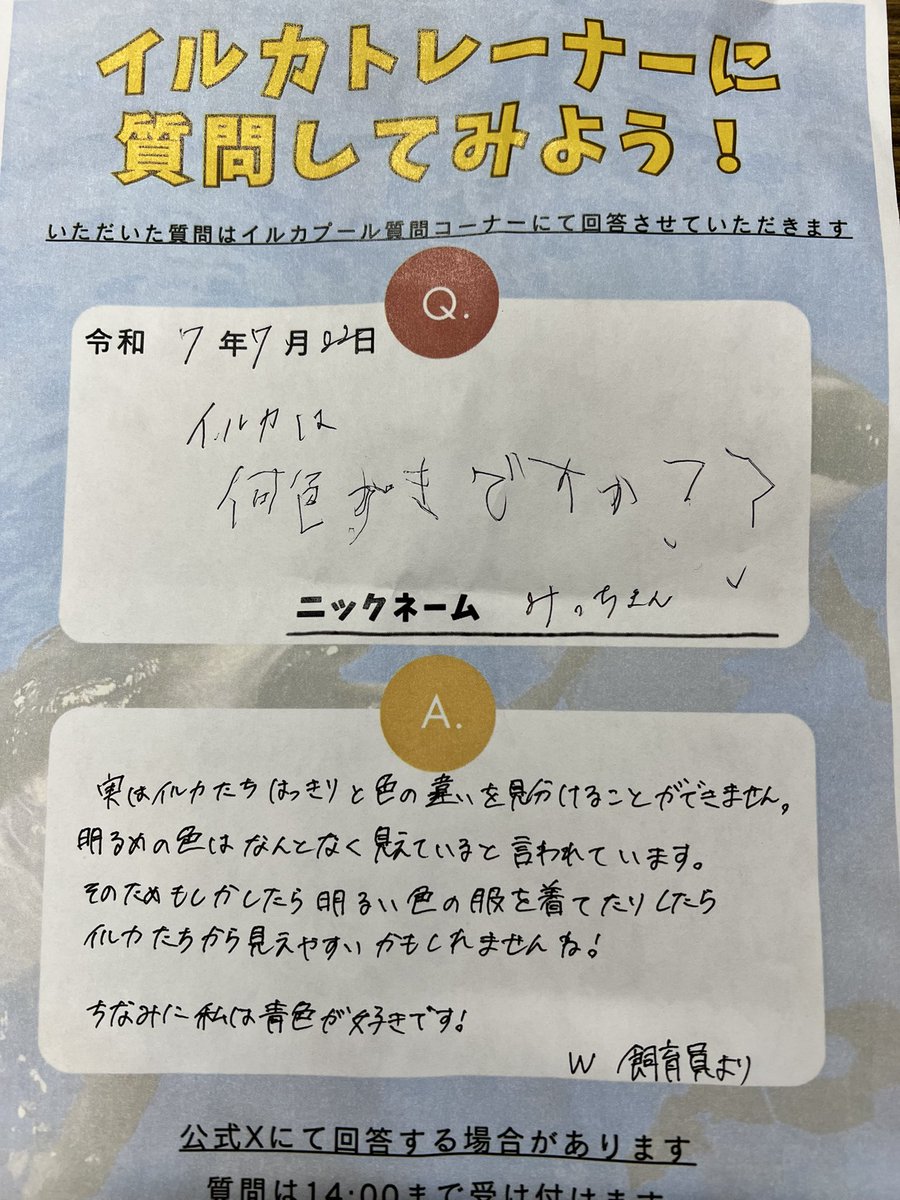 イルカトレーナーに
質問してみよう！
いただいた質問はイルカプール質問コーナーにて回答させていただきます
Q.
令和 7年7月22日
イルカは
何色ずきですか？？
ニックネーム みっちまん
A.
実はイルカたちはっきりと色の違いを見分けることができません。
明るめの色はなんとなく見えていると言われています。
そのためもしかしたら明るい色の服を着てたりしたら
イルカたちから見えやすいかもしれませんね！
ちなみに私は青色が好きです！
W 飼育員より
公式Xにて回答する場合があります
質問は14:00まで受け付けます